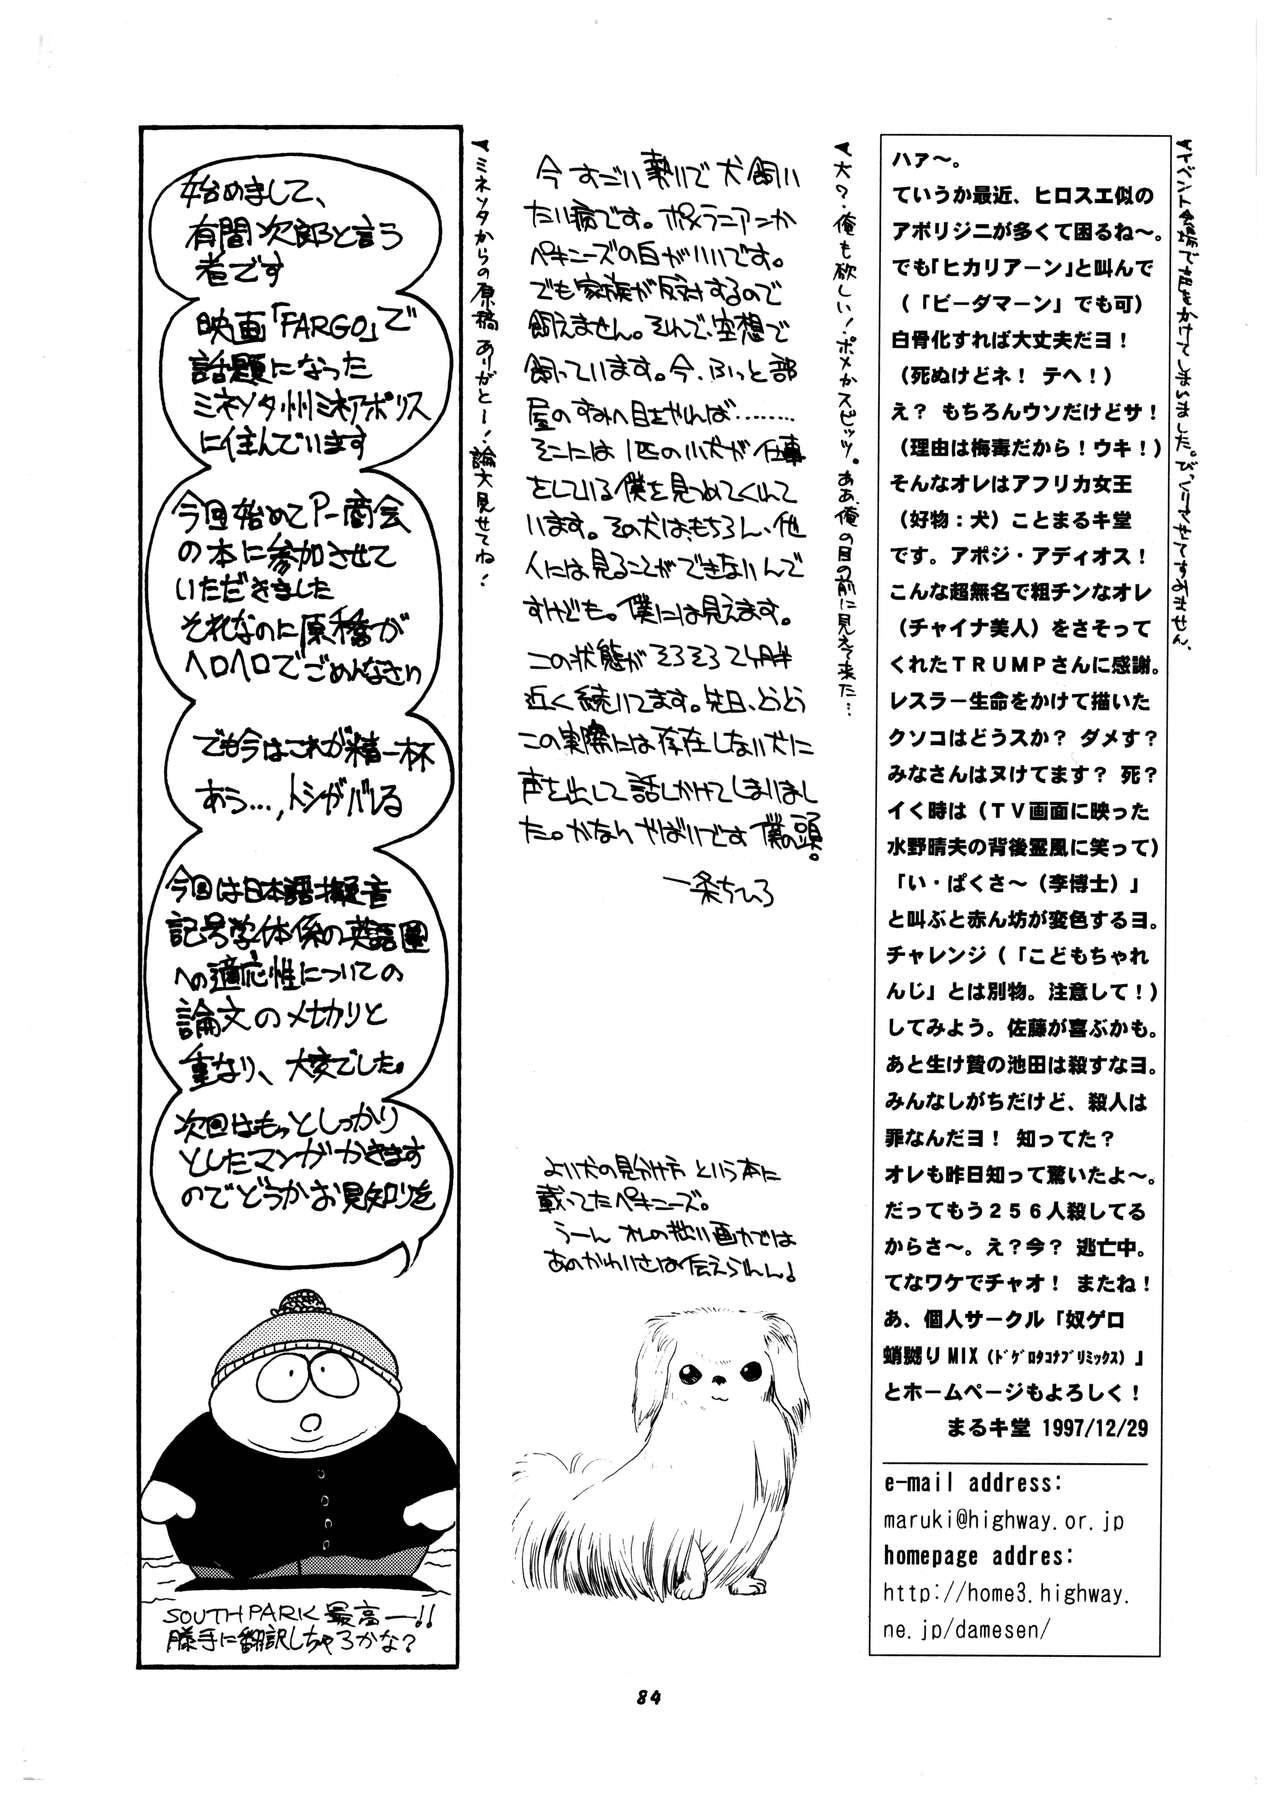 ▼イベント会場で声をかけてしまいました。びっくりさせてすみません。
ハァ～。
ていうか最近、ヒロスエ似の
アボリジニが多くて困るね～。
でも｢ヒカリアーン｣と叫んで
（｢ビーダマーン」でも可）
白骨化すれば大丈夫だヨ！
（死ぬけどネ！ テヘ！）
え？ もちろんウソだけどサ！
（理由は梅毒だから！ウキ！）
そんなオレはアフリカ女王
（好物：犬）ことまるキ堂
です。アポジ・アディオス！
こんな超無名で粗チンなオレ
（チャイナ美人）をさそって
くれたＴＲＵＭＰさんに感謝。
レスラー生命をかけて描いた
クソコはどうスか？ ダメす？
みなさんはヌけてます？ 死？
イく時は（ＴＶ画面に映った
水野晴夫の背後霊風に笑って）
「い・ぱくさ～（李博士）」
と叫ぶと赤ん坊が変色するヨ。
チャレンジ（「こどもちゃれ
んじ」とは別物。注意して！）
してみよう。佐藤が喜ぶかも。
あと生け贄の池田は殺すなヨ。
みんなしがちだけど、殺人は
罪なんだヨ！ 知ってた？
オレも昨日知って驚いたよ～。
だってもう２５６人殺してる
からさ～。え？今？ 逃亡中。
てなワケでチャオ！ またね！
あ、個人サークル「奴ゲロ
蛸嬲りMIX（ﾄﾞｹﾞﾛﾀｺﾅﾌﾞﾘﾐｯｸｽ）」
とホームページもよろしく！
まるキ堂 1997/12/29
e-mail address:
maruki@highway.or.jp
homepage addres:
http://home3.highway.
ne.jp/damesen/
▼犬？俺も欲しい！ポメかスピッツ。ああ、俺の目の前に見えて来た…
今すごい勢いで犬飼い
たい病です。ポメラニアンか
ペキニーズの白がいいです。
でも家族が反対するので
飼えません。それで、空想で
飼っています。今、ふっと部
屋のすみへ目をやれば………
そこには1匹の小犬が仕事
をしている僕を見つめてくれて
います。その犬は、もちろん、他
人には見ることができないんで
すけども。僕には見えます。
この状態がそろそろ2ヶ月半
近く続いてます。先日、とうとう
この実際には存在しない犬に
声を出して話しかけてしまいまし
た。かなりやばいです僕の頭。
一条ちひろ
よい犬の見分け方という本に
載ってたペキニーズ。
うーん オレの拙い画力では
あのかわいさは伝えられん！
▼ミネソタからの原稿ありがとー！論文見せてね！
始めまして、
有間次郎と言う
者です
映画「FARGO」で
話題になった
ミネソタ州ミネアポリス
に住んでいます
今回始めてP－商会
の本に参加させて
いただきました
それなのに原稿が
ヘロヘロでごめんなさい
でも今はこれが精一杯
あう…,トシがバレる
今回は日本語擬音
記号学体係の英語圏
への適応性についての
論文のメ切りと
重なり、大変でした。
次回はもっとしっかり
としたマンガかきます
のでどうかお見知りを
SOUTH PARK 最高ー!!
勝手に翻訳しちゃろかな？
84